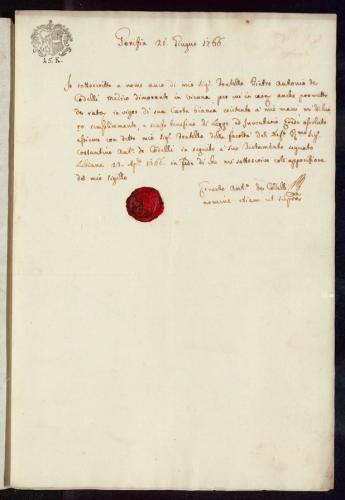 15 K.
21. Giugno 1766.
Io sottoscritto a nome anco di mio Sig.r Fratello Pietro Antonio de
Codelli Medico dimorante in Vienna per cui in caso, anche prometto
de rato, in vigor di sua Carta bianca esistente a mie mani, mi dichia
ro semplicemente, e senza beneficio di Legge ed Inventario Erede
assieme con detto mio Sig.r Fratello della facoltà del
Costantino Ant.o de Codelli in seguito a suo Testamento segnato
Lubiana 23. 1766. in fede di che mi sottoscrivo coll'apposizione
del mio Sigillo
Ant.o de Codelli
nomine etiam ut supra